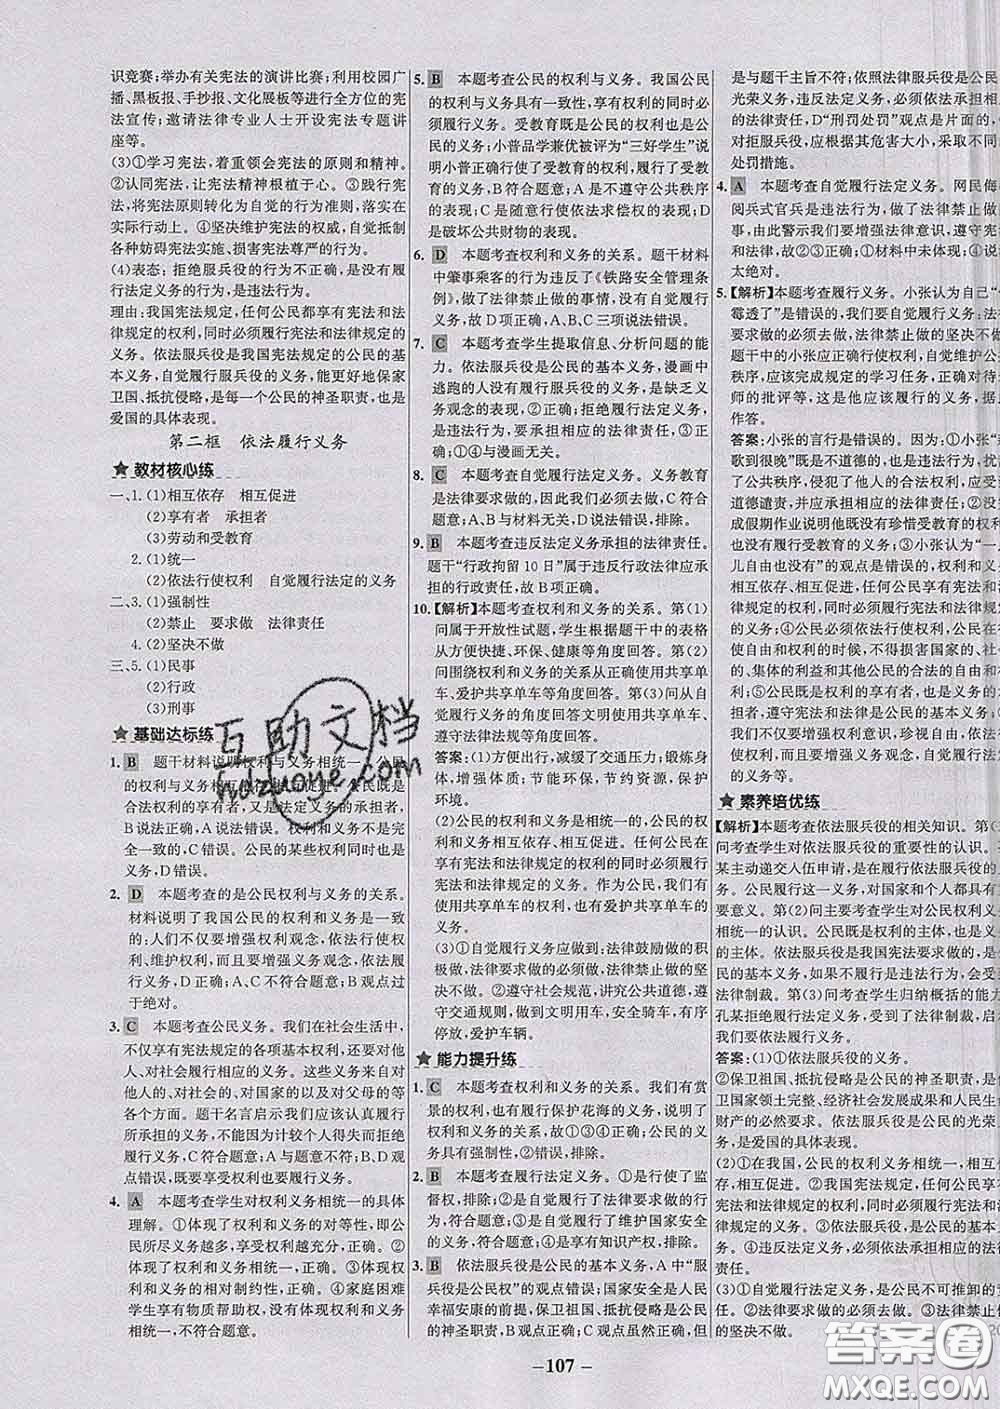 识竞赛;举办有关宪法的演讲比赛;利用校园广
播、黑板报、手抄报、文化展板等进行全方位的宪
法宣传;邀请法律专业人士开设宪法专题讲
座等。
(3)①学习宪法,着重领会宪法的原则和精神。
②认同宪法,让宪法精神根植于心。③践行宪
法,将宪法原则转化为自觉的行为准则,落实在
实际行动中。④坚决维护宪法的权威,自觉抵制
各种妨碍宪法实施、损害宪法尊严的行为。
(4)表态:拒绝服兵役的行为不正确,是没有履
行法定义务的行为,是违法行为。
理由:我国宪法规定,任何公民都享有宪法和法
律规定的权利,同时必须履行宪法和法律规定的
义务。依法服兵役是我国宪法规定的公民的基
本义务,自觉履行服兵役的义务,能更好地保家
卫国、抵抗侵略,是每一个公民的神圣职责,也是
爱国的具体表现。
第二框 依法履行义务
★教材核心练
一、1.(1)相互依存 相互促进
(2)享有者 承担者
(3)劳动和受教育
2.(1)统一
(2)依法行使权利 自觉履行法定的义务
二、3.(1)强制性
(2)禁止 要求做 法律责任
4.(2)坚决不做
三、5.(1)民事
(2)行政
(3)刑事
★基础达标练
1. B 题干材料说明权利与义务相统一,公民
的权利与义务相互依存、相互促进。公民既是
合法权利的享有者,又是法定义务的承担者,
B说法正确,A说法错误。权利和义务不是完
全一致的,C错误。公民的某些权利同时也是
义务,D错误。
2. D 本题考查的是公民权利与义务的关系。
材料说明了我国公民的权利和义务是一致
的:人们不仅要增强权利观念,依法行使权
利、维护权利,而且要增强义务观念,依法履
行义务,D符合题意;A、C不符合题意;B观点过
于绝对。
3. C 本题考查公民义务。我们在社会生活中,
不仅享有宪法规定的各项基本权利,还要对他
人、对社会履行相应的义务。这些义务来自对
他人的、对社会的、对国家的以及对父母的等
各个方面。题干名言启示我们应该认真履行
所承担的义务,不能因为计较个人得失而拒绝
履行义务,C符合题意;A与题意不符;B、D
说法错误,既要享受权利也要履行义务。
4. A 本题考查学生对权利义务相统一的具体
理解。①体现了权利和义务的对等性,即公
民所尽义务越多,享受权利越充分,正确。②
体现了权利和义务的统一性,正确。③体现
权利和义务的相对制约性,正确。④家庭困难
学生享有物质帮助权,没有体现权利和义务
相统一,不符合题意。
5. B 本题考查公民的权利与义务。我国公民
的权利与义务具有一致性,享有权利的同时必
须履行义务。受教育既是公民的权利也是公
民的义务;小普品学兼优被评为“三好学生”说
明小普正确行使了受教育的权利,履行了受教
育的义务,B符合题意;A是不遵守公共秩序
的表现;C是随意行使依法求偿权的表现;D
是破坏公共财物的表现。
6. D 本题考查权利和义务的关系。题干材料
中肇事乘客的行为违反了《铁路安全管理条
例》,做了法律禁止做的事情,没有自觉履行
义务。故D项正确,A、B、C三项说法错误。
7. C 本题考查学生提取信息、分析问题的能
力。依法服兵役是公民的基本义务,漫画中
逃跑的人没有履行服兵役的义务,是缺乏义
务观念的表现,②正确;拒绝履行法定义务的
行为,要承担相应的法律责任,③正确;
①④与漫画无关。
8. C 本题考查自觉履行法定义务。义务教育
是法律要求做的,因此我们必须去做,C符合
题意;A、B与材料无关,D说法错误,排除。
9. B 本题考查违反法定义务承担的法律责任。
题干“行政拘留10日”属于违反行政法律应承
担的行政责任,故B项正确。
10.【解析】本题考查权利和义务的关系。第(1)
问属于开放性试题,学生根据题干中的表格
从方便快捷、环保、健康等角度回答。第(2)
问围绕权利和义务的关系从正确使用共享单
车、爱护共享单车等角度回答。第(3)问从自
觉履行义务的角度回答文明使用共享单车、
遵守法律法规等角度回答。
答案:(1)方便出行,减小交通压力;锻炼身
体,增强体质;节能环保,节约资源,保护
环境。
(2)公民的权利和义务是相统一的,权利和义
务相互依存、相互促进。任何公民
享有宪法和法律规定的权利,同时必须履行
宪法和法律规定的义务。作为公民,我们有
使用共享单车的权利,也有爱护共享单车的
义务。
(3)①自觉履行义务应做到:法律鼓励做的积
极做,法律要求做的必须做,法律禁止做的
坚决不做。②遵守社会规范,讲究公共道德,遵
守交通规则,做到文明用车,安全骑车,有序
停放,爱护车辆。
★能力提升练
1. C 本题考查权利和义务的关系。我们有赏
景的权利,也有履行保护花海的义务,说明了
权利和义务相统一,故①③④正确;公民的义
务具有强制性,②错误,排除。
2. B 本题考查履行法定义务。①是行使了监
督权,排除;②是履行了法律要求做的行
为,符合题意;③是自觉履行了维护国家安全
的义务,符合题意;④是享有知识产权,排除。
3. B 依法服兵役是公民的基本义务,A中“服
兵役是公民权”的观点错误;国家安全是人民
幸福安康的前提,保卫祖国、抵抗侵略是公民
的神圣职责,B观点正确;C观点虽然正确,但
是与题干主旨不符;依照法律服兵役是公民
光荣义务,违反法定义务,必须依法承担
的法律责任,D“刑罚处罚”观点是片面的,
对拒服兵役,应根据其危害大小,采取
处罚措施。
4. A 本题考查自觉履行法定义务。网民侮
阅兵式官兵是违法行为,做了法律禁止做
事,由此警示我们要增强法律意识,遵守宪
和法律,故②③正确;①材料中未体现;④说
太绝对。
5.【解析】本题考查履行义务。小张认为自己“
霉透了”是错误的,我们要履行义务,法
要求做的必须去做,法律禁止做的坚决不
题干中的小张应正确行使权利,自觉遵守公
秩序,应该完成规定的学习任务,正确
师的批评等,这才是正确的履行义务,
作答。
答案:小张的言行是错误的。因为:①小张“
歌到很晚”是不道德的,也是违法的,
了公共秩序,侵犯了他人的休息权,应受
道德谴责,并应承担相应的法律责任;②
成假期作业说明他没有珍惜受教育的权利
也没有履行受教育的义务;③小张认为“一
儿自由也没有”的观点是错误的,权利和义
相互依存、相互促进。任何公民享有宪法和
律规定的权利,同时必须履行宪法和法律
的义务;④公民必须依法行使权利,行使自
和权利的时候,不得损害国家的、社会
的、集体的利益和其他公民的合法的自由和
利;⑤公民既是权利的享有者,也是义务的
担者,遵守宪法和法律是公民的基本义务。
我们不仅要增强权利观念,依法行使权利、
权利,而且要增强义务观念,自觉履行
的义务等。
★素养培优练
【解析】本题考查依法服兵役的相关知识。第(
问考查学生对依法服兵役的重要性的认识。
某主动递交入伍申请,是在履行依法服兵役的
务。公民履行这一义务,对国家和个人都具有
要意义。第(2)问主要考查学生对公民权利义
一的认识。公民既是权利的主体,也是义
的主体。依法服兵役是我国宪法要求做的,是
民的基本义务,如果不履行是违法行为,会受
法律制裁。第(3)问考查学生归纳概括的能力
孔某拒绝履行义务,受到了法律制裁,启
我们要依法履行义务。
答案:(1)①依法服兵役的义务。
②保卫祖国、抵抗侵略是公民的神圣职责,是
卫国家领土完整、经济社会发展成果和人民生
财产的必要力量,也是公民的光荣
务,是爱国的具体表现。
(2)①在我国,公民的权利和义务相统一,相
依存,相互促进。②任何公民享有宪法和法律规
定的权利,同时必须履行宪法和法律规定的
务。④违反法定义务,必须依法承担相应的法
责任。
(3)①自觉履行法定义务,是公民不可推卸的
任。②法律要求做的必须去做。③法律禁
的坚决不做。
-107-
互助文档
hdzuoye.com
答案圈
MXQE.COM